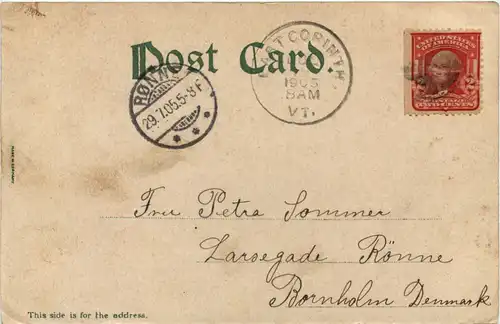 Post Card.
EAST CORINTH,
1905
8AM
VT.
RØNNE
29.7.05.5-8 F
UNITED STATES
OF AMERICA
POSTAGE
TWO CENTS
Fru Petra Sommer
Larsegade Rönne
Bornholm Denmark
This side is for the address.